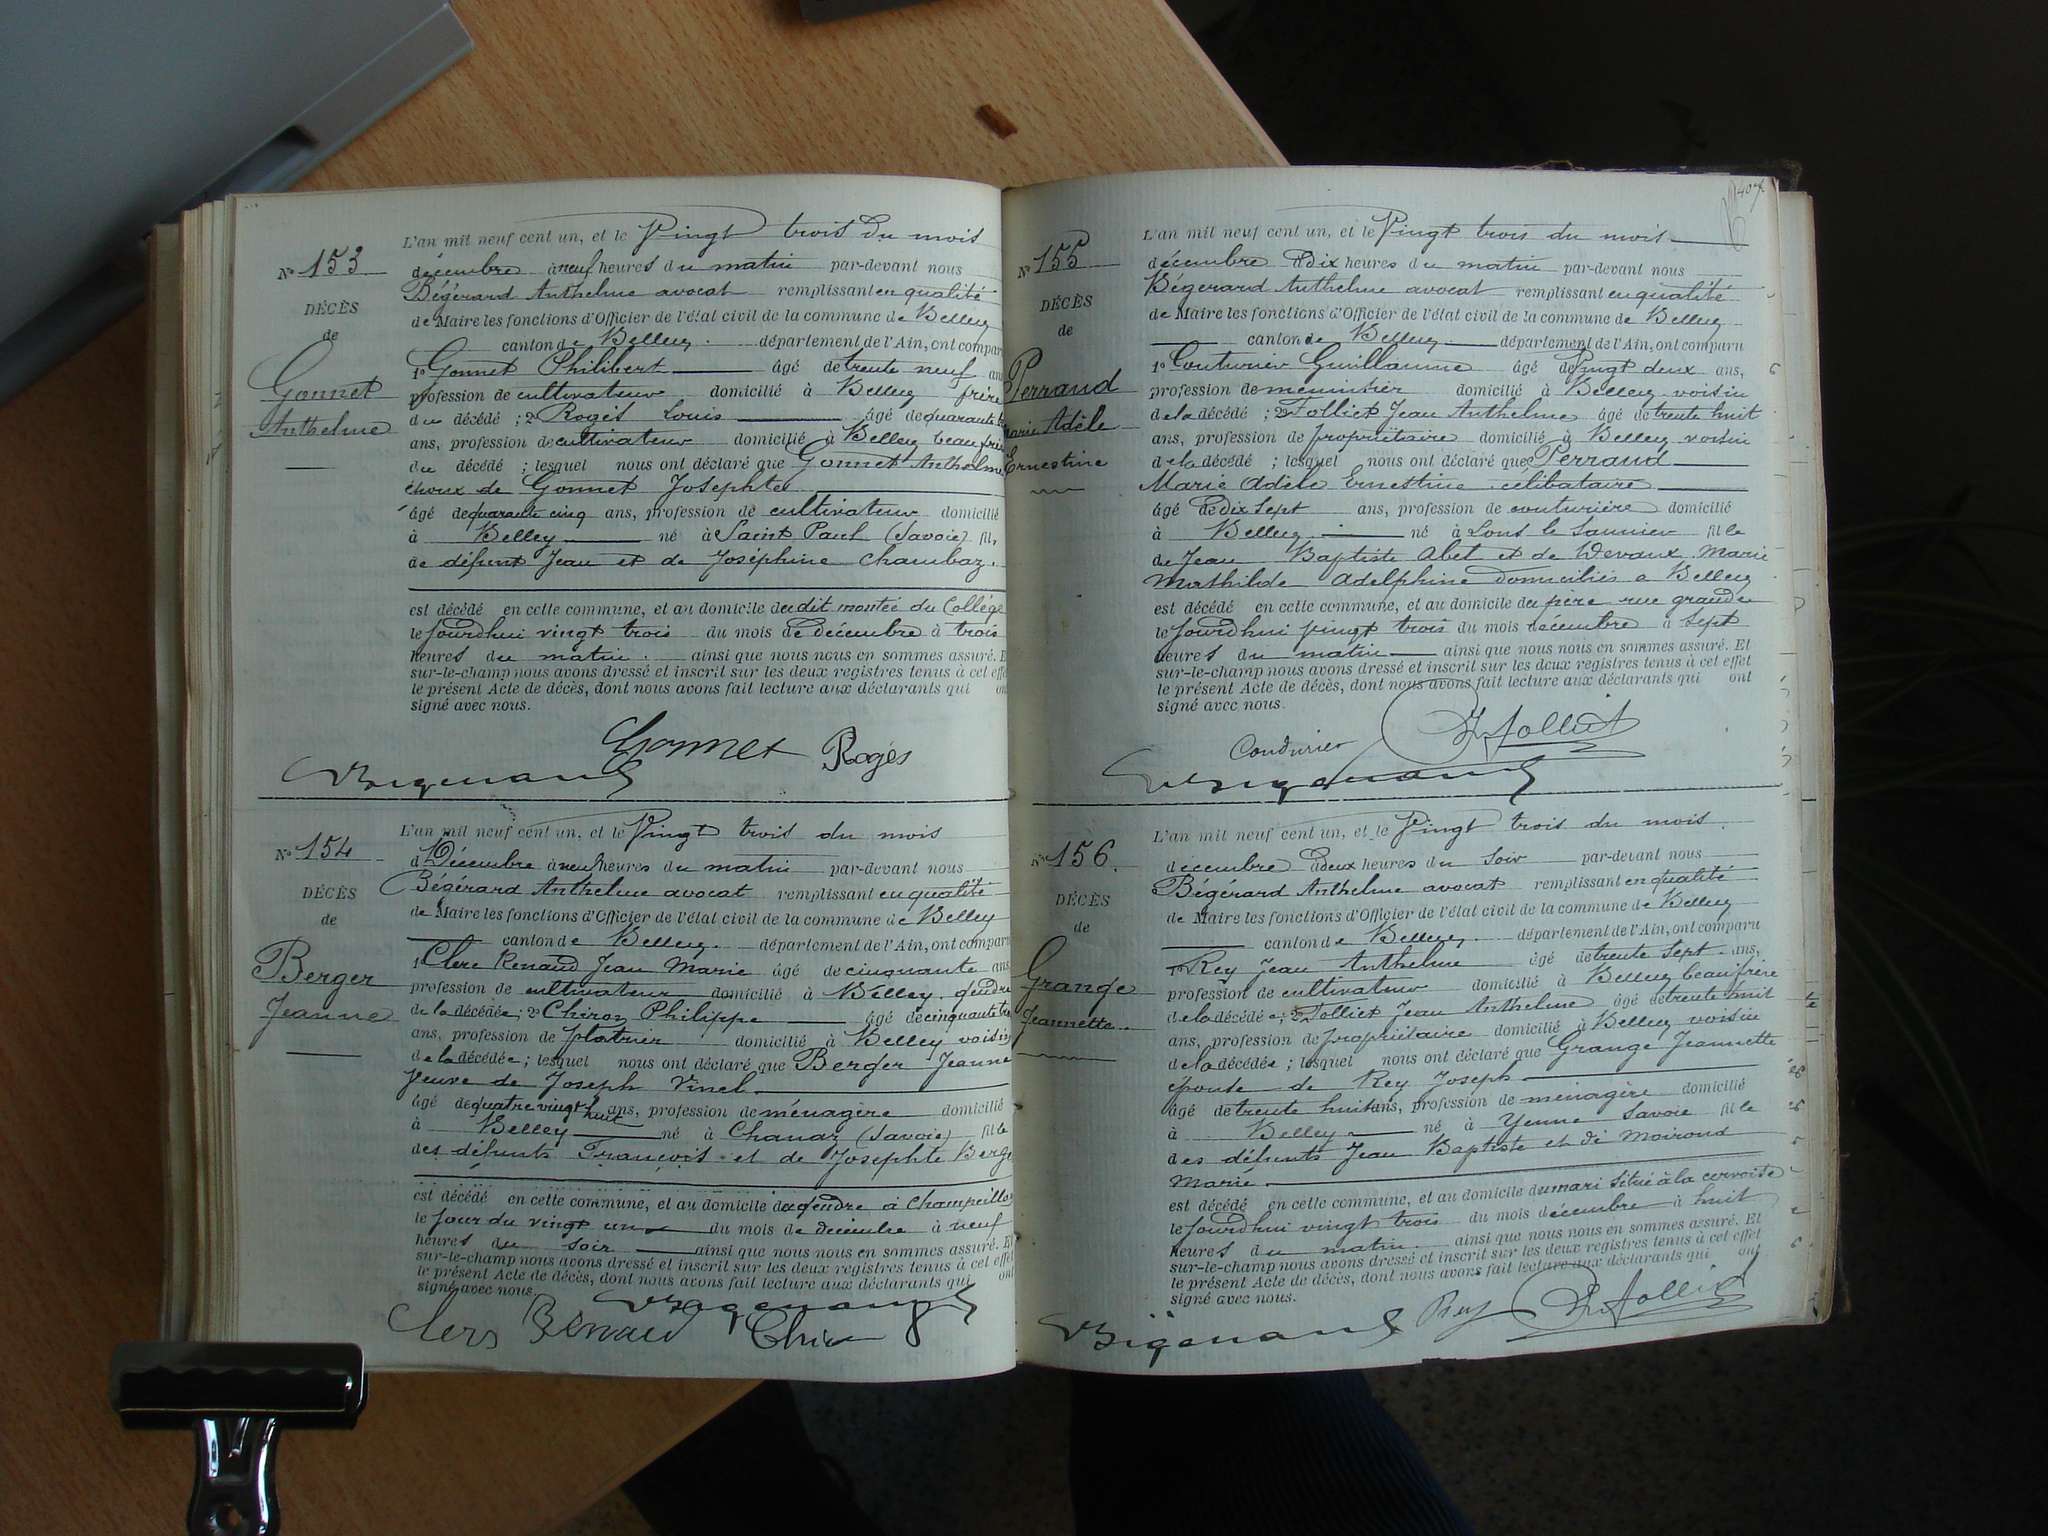 L'an mil neuf cent un, et le Vingt trois du mois
N° 153
décembre à neuf heures du matin par-devant nous
Bégérard Anthelme avocat remplissant en qualité
DÉCÈS
de Maire les fonctions d'Officier de l'état civil de la commune de Belley
de
canton de Belley département de l'Ain, ont comparu
Gonnet
Anthelme
1° Gonnet Philibert âgé de trente neuf ans
profession de cultivateur domicilié à Belley frère
du décédé ; 2° Rogès Louis âgé de quarante
ans, profession de cultivateur domicilié à Belley beau frère
du décédé ; lesquel nous ont déclaré que Gonnet Anthelme
époux de Gonnet Josephte
âgé de quarante cinq ans, profession de cultivateur domicilié
à Belley né à Saint Paul (Savoie) fils
de défunt Jean et de Joséphine Chambaz.
est décédé en cette commune, et au domicile du dit montée du Collège
le jourdhui vingt trois du mois de décembre à trois
heures du matin. ainsi que nous nous en sommes assuré. Et
sur-le-champ nous avons dressé et inscrit sur les deux registres tenus à cet effet
le présent Acte de décès, dont nous avons fait lecture aux déclarants qui ont
signé avec nous.
Gonnet Rogès
Bégerard
L'an mil neuf cent un, et le Vingt trois du mois
N° 154
Décembre à neuf heures du matin par-devant nous
Bégérard Anthelme avocat remplissant en qualité
DÉCÈS
de Maire les fonctions d'Officier de l'état civil de la commune de Belley
de
canton de Belley. département de l'Ain, ont comparu
Berger
Jeanne
1° Clerc Renaud Jean Marie âgé de cinquante ans
profession de cultivateur domicilié à Belley. gendre
de la décédée ; 2° Chiron Philippe âgé de cinquante
ans, profession de platrier domicilié à Belley voisin
de la décédée ; lesquel nous ont déclaré que Berger Jeanne
Veuve de Joseph Vinel.
âgé de quatre vingt huit ans, profession de ménagère domicilié
à Belley né à Chanaz (Savoie) fille
des défunts François et de Josephte Berger
est décédé en cette commune, et au domicile du gendre à Champeillon
le jour du vingt un du mois de décembre à neuf
heures du soir ainsi que nous nous en sommes assuré. Et
sur-le-champ nous avons dressé et inscrit sur les deux registres tenus à cet effet
le présent Acte de décès, dont nous avons fait lecture aux déclarants qui ont
signé avec nous.
Bégerard
Clerc Renaud Chiron
407
L'an mil neuf cent un, et le Vingt trois du mois
N° 155
décembre à dix heures du matin par-devant nous
Bégerard Anthelme avocat remplissant en qualité
DÉCÈS
de Maire les fonctions d'Officier de l'état civil de la commune de Belley
de
canton de Belley département de l'Ain, ont comparu
Perraud
Marie Adèle
Ernestine
1° Couturier Guillaume âgé de Vingt deux ans,
profession de menuisier domicilié à Belley voisin
de la décédé ; 2° Tolliet Jean Anthelme âgé de trente huit
ans, profession de propriétaire domicilié à Belley voisin
de la décédé ; lesquel nous ont déclaré que Perraud
Marie Adèle Ernestine célibataire
âgé de dix sept ans, profession de couturière domicilié
à Belley né à Lons le Saunier fille
de Jean Baptiste Abet et de Devaux Marie
Mathilde Adelphine domiciliés a Belley
est décédé en cette commune, et au domicile du père rue grande
le jourdhui vingt trois du mois decembre à sept
heures du matin ainsi que nous nous en sommes assuré. Et
sur-le-champ nous avons dressé et inscrit sur les deux registres tenus à cet effet
le présent Acte de décès, dont nous avons fait lecture aux déclarants qui ont
signé avec nous.
Condurier Tolliet
Bégerard
L'an mil neuf cent un, et le Vingt trois du mois
N° 156.
décembre à deux heures du soir par-devant nous
Bégérard Anthelme avocat remplissant en qualité
DÉCÈS
de Maire les fonctions d'Officier de l'état civil de la commune de Belley
de
canton de Belley, département de l'Ain, ont comparu
Grange
Jeannette
1° Rey Jean Anthelme âgé de trente sept ans,
profession de cultivateur domicilié à Belley beau frère
de la décédé e ; 2° Tolliet Jean Anthelme âgé de trente huit
ans, profession de propriétaire domicilié à Belley voisin
de la décédée ; lesquel nous ont déclaré que Grange Jeannette
épouse de Rey Joseph
âgé de trente huit ans, profession de ménagère domicilié
à Belley né à Yenne Savoie fille
des défunts Jean Baptiste et de Moiroud
Marie.
est décédé en cette commune, et au domicile du mari situé à la cervoise
le jourdhui vingt trois du mois décembre à huit
heures du matin. ainsi que nous nous en sommes assuré. Et
sur-le-champ nous avons dressé et inscrit sur les deux registres tenus à cet effet
le présent Acte de décès, dont nous avons fait lecture aux déclarants qui ont
signé avec nous.
Bégerard Rey Tolliet